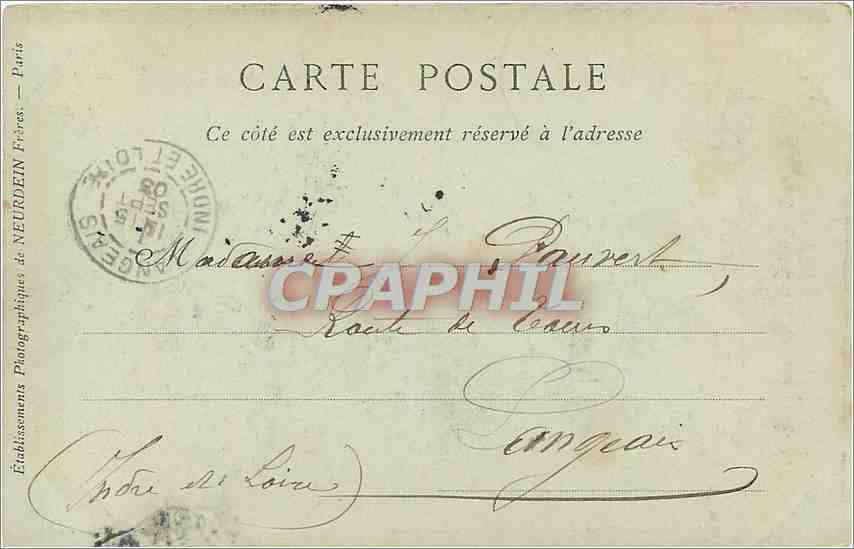 CARTE POSTALE
Ce côté est exclusivement réservé à l'adresse
Établissements Photographiques de NEURDEIN Frères. — Paris
LANGEAIS
INDRE ET LOIRE
SEPT
03
Madame J. Pauvert,
CPAPHIL
Route de Tours
Langeais
(Indre et Loire)